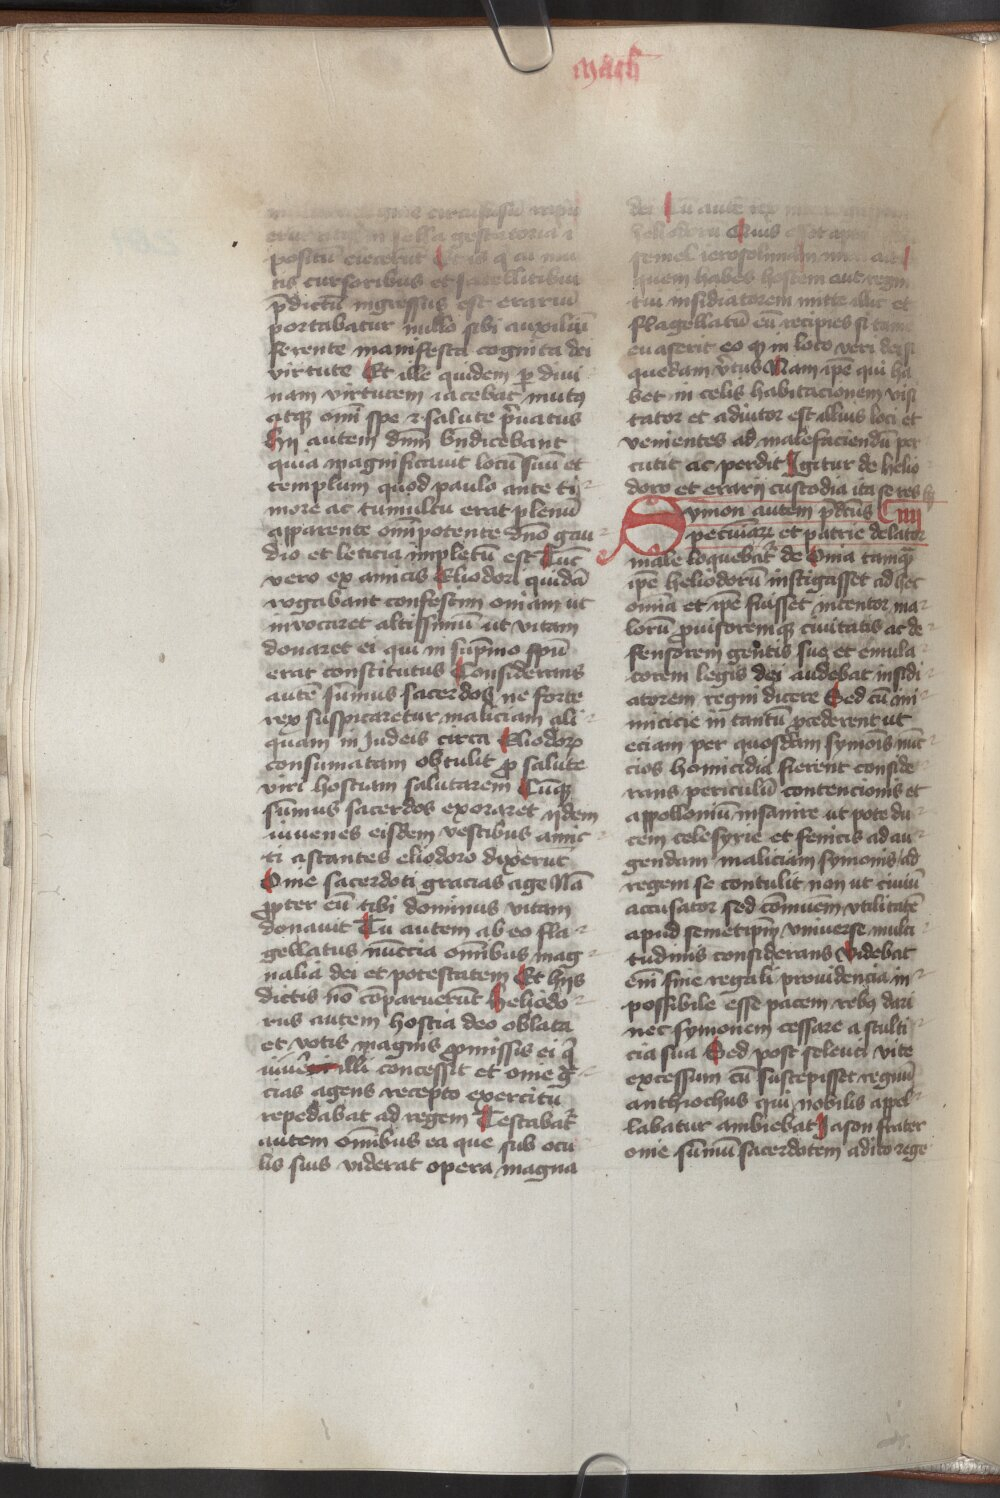 Mach
circūfusū rapu
erūt in sella gestatoria
positū eiecerūt Et is q̄ cū mul
tis cursoribus et satellitibus
p̄dictū ingressus est erariū
portabatur nullo sibi auxiliū
ferente manifesta cognita dei
virtute Et ille quidem ꝑ divi
nam virtutem iacebat mutꝰ
atqꝫ om̄i spe ⁊ salute p̄uatus
Hij autem dn̄m bn̄dicebant
quia magnificauit locū suū et
templum quod paulo ante ti
more ac tumultu erat plenū
apparente om̄ipotente dn̄o gau
dio et leticia impletū est Tūc
vero ex amicis eliodori quidā
rogabant confestim oniam ut
invocaret altissimū ut vitam
donaret ei qui in sup̄mo sp̄u
erat constitutus Considerans
autē sūmus sacerdos ne forte
rex suspicaretur maliciam ali
quam in Judeis circa eliodorū
consumatam obtulit ꝓ salute
viri hostiam salutarem Cūqꝫ
sūmus sacerdos exoraret ijdem
iuuenes eisdem vestibus amic
ti astantes eliodoro dixerūt
Onie sacerdoti gracias age Nā
ꝓpter eū tibi dominus vitam
donauit Tu autem ab eo fla
gellatus nūccia om̄ibus mag
nalia dei et potestatem Et hijs
dictis nō cōparuerūt heliodo
rus autem hostia deo oblata
et votis magnis ꝓmissis ei q̄
illi concessit et onie gr̄
cias agens recepto exercitū
repedabat ad regem Testabat᷑
autem om̄ibus ea que sub ocu
lis suis viderat opera magna
dei Cū autē rex
heliodorū Quis esset
semel ierosolimam
quem habes hostem aut regni
tui insidiatorem mitte illuc et
flagellatū eū recipies si tamē
euaserit eo ꝙ in loco veri dei si
quedam v̄tus Nam ip̄e qui ha
bet in celis habitacionem visi
tator et adiutor est illius loci et
venientes ad malefaciendū per
cutit ac perdit Igitur de helio
doro et erarij custodia ita se res hꝫ
Symon autem p̄dc̄us C iiij
pecuniarū et patrie delator
male loquebat᷑ de Onia tamqͣ
ip̄e heliodorū instigasset ad hec
om̄ia et ip̄e fuisset incentor ma
lorū ꝓuisoremqꝫ ciuitatis ac de
fensorem gentis sue et emula
torem legis dei audebat insidi
atorem regni dicere Sed cū ini
micicie in tantū ꝓcederent ut
eciam per quosdam symōis nūc
cios homicidia fierent conside
rans periculū contencionis et
appolloniū insanire ut pote du
cem celesyrie et fenicis ad au
gendam maliciam symonis ad
regem se contulit non ut ciuiū
accusator sed cōmunem vtilitatē
apud semetip̄m vniuerse multi
tudinis considerans Videbat
em̄ sine regali prouidencia in
possibile esse pacem rebꝰ dari
nec symonem cessare a stulti
cia sua Sed post seleuci vite
excessum cū suscepisset regnū
anthiochus qui nobilis appel
labatur ambiebat Jason frater
onie sūmū sacerdotem adito rege